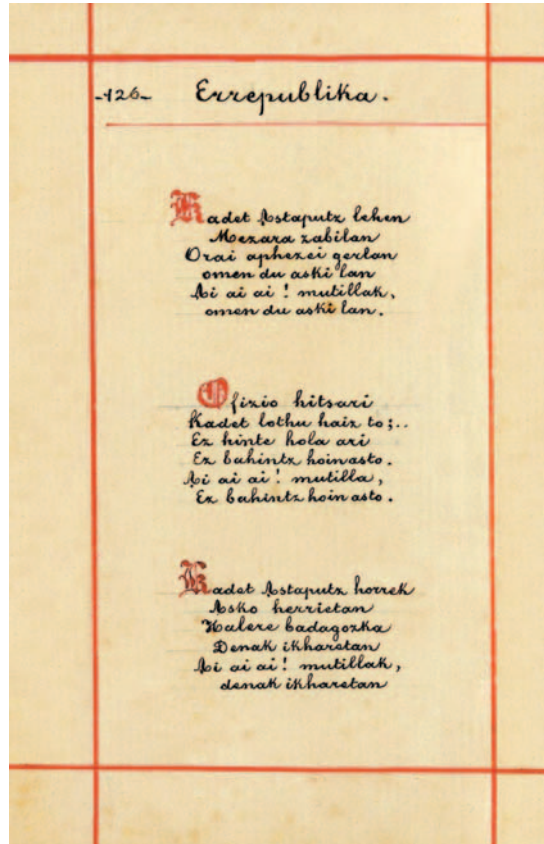 -126- Errepublika.
Kadet Astaputz lehen
Mezara zabilan
Orai aphezei gerlan
omen du aski lan
Ai ai ai ! mutillak,
omen du aski lan.
Ofizio hitsari
Kadet lothu haiz to;..
Ez hinte hola ari
Ez bahintz hoin asto.
Ai ai ai ! mutilla,
Ez bahintz hoin asto.
Kadet Astaputz horrek
Asko herrietan
Halere badagozka
Denak ikharetan
Ai ai ai ! mutillak,
denak ikharetan